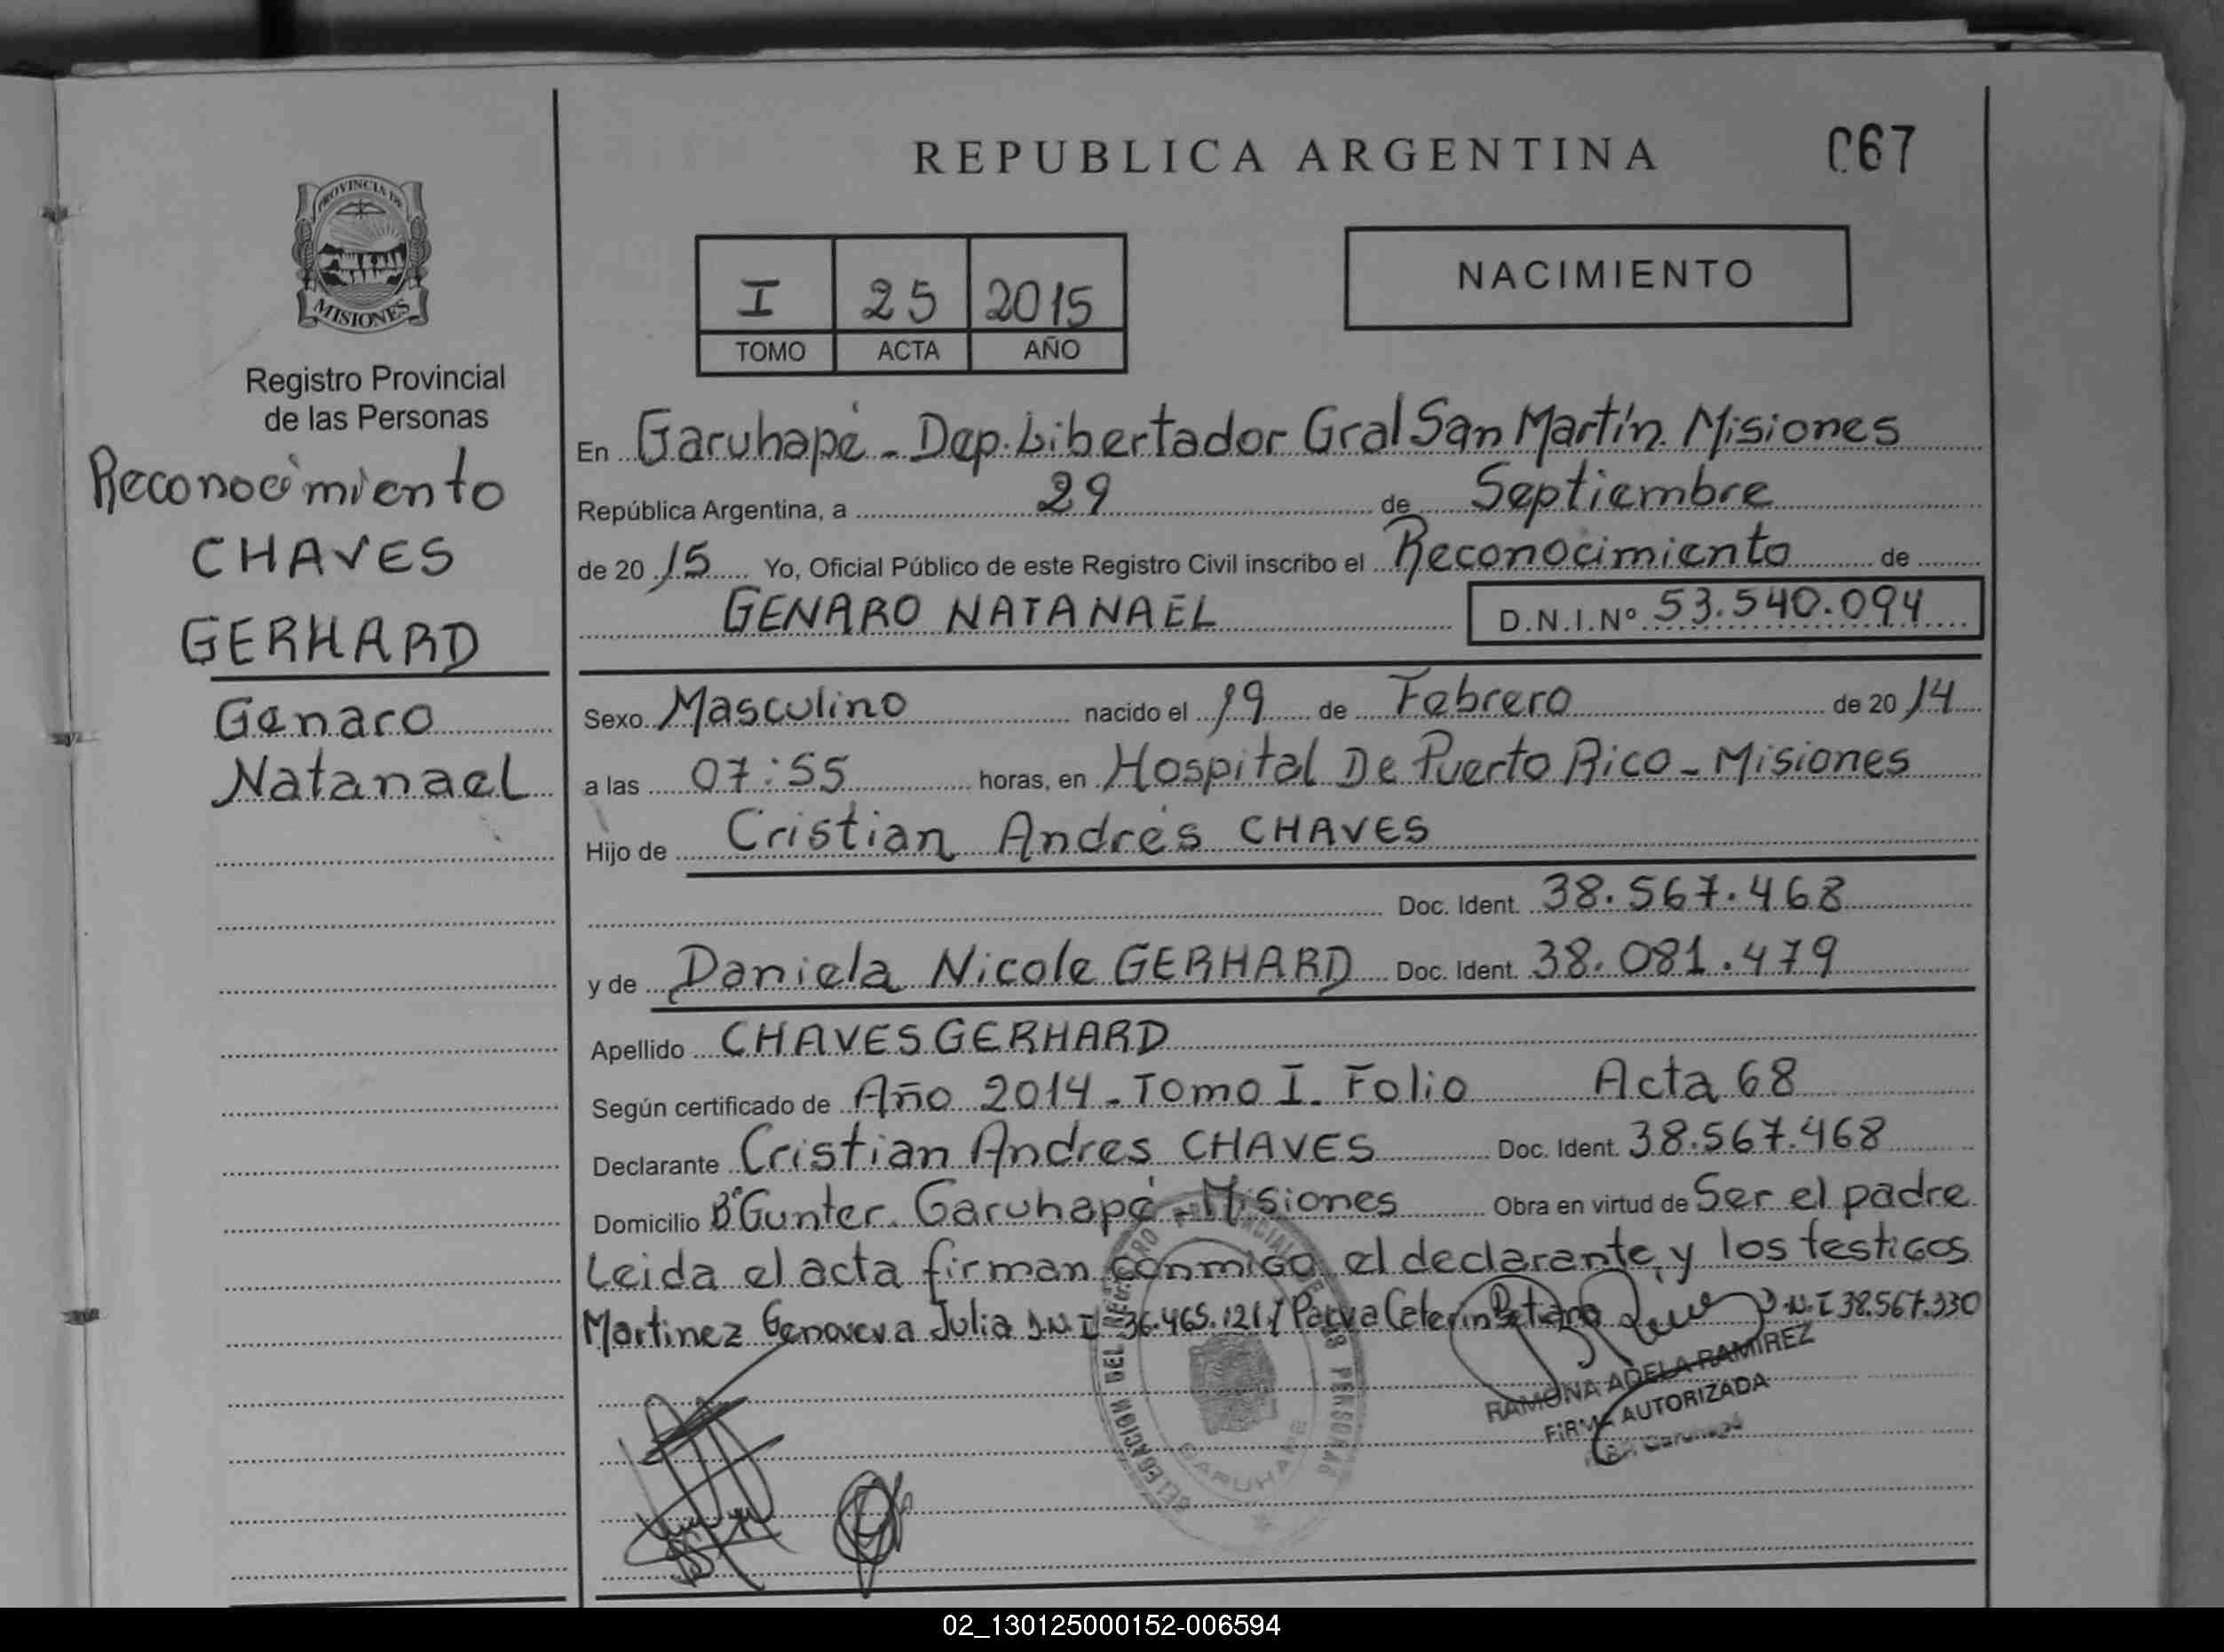 REPUBLICA ARGENTINA
067
PROVINCIA DE
MISIONES
Registro Provincial
de las Personas
Reconocimiento
CHAVES
GERHARD
Genaro
Natanael
I 25 2015
TOMO ACTA AÑO
NACIMIENTO
En Garuhapé - Dep. Libertador Gral San Martín. Misiones
República Argentina, a 29 de Septiembre
de 20 15 Yo, Oficial Público de este Registro Civil inscribo el Reconocimiento de
GENARO NATANAEL D.N.I.Nº 53.540.094
Sexo Masculino nacido el 19 de Febrero de 20 14
a las 07:55 horas, en Hospital De Puerto Rico - Misiones
Hijo de Cristian Andrés CHAVES
Doc. Ident. 38.567.468
y de Daniela Nicole GERHARD Doc. Ident. 38.081.479
Apellido CHAVES GERHARD
Según certificado de Año 2014 - Tomo I. Folio Acta 68
Declarante Cristian Andres CHAVES Doc. Ident. 38.567.468
Domicilio Bº Gunter. Garuhapé - Misiones Obra en virtud de Ser el padre
Leida el acta firman conmigo el declarante, y los testigos
Martinez Genoveva Julia D.N.I 36.465.121 / D.N.I 38.567.330
RAMONA ADELA RAMIREZ
FIRMA AUTORIZADA
Garuhapé
DELEGACION DEL REGISTRO PROVINCIAL DE LAS PERSONAS
GARUHAPE
02_130125000152-006594